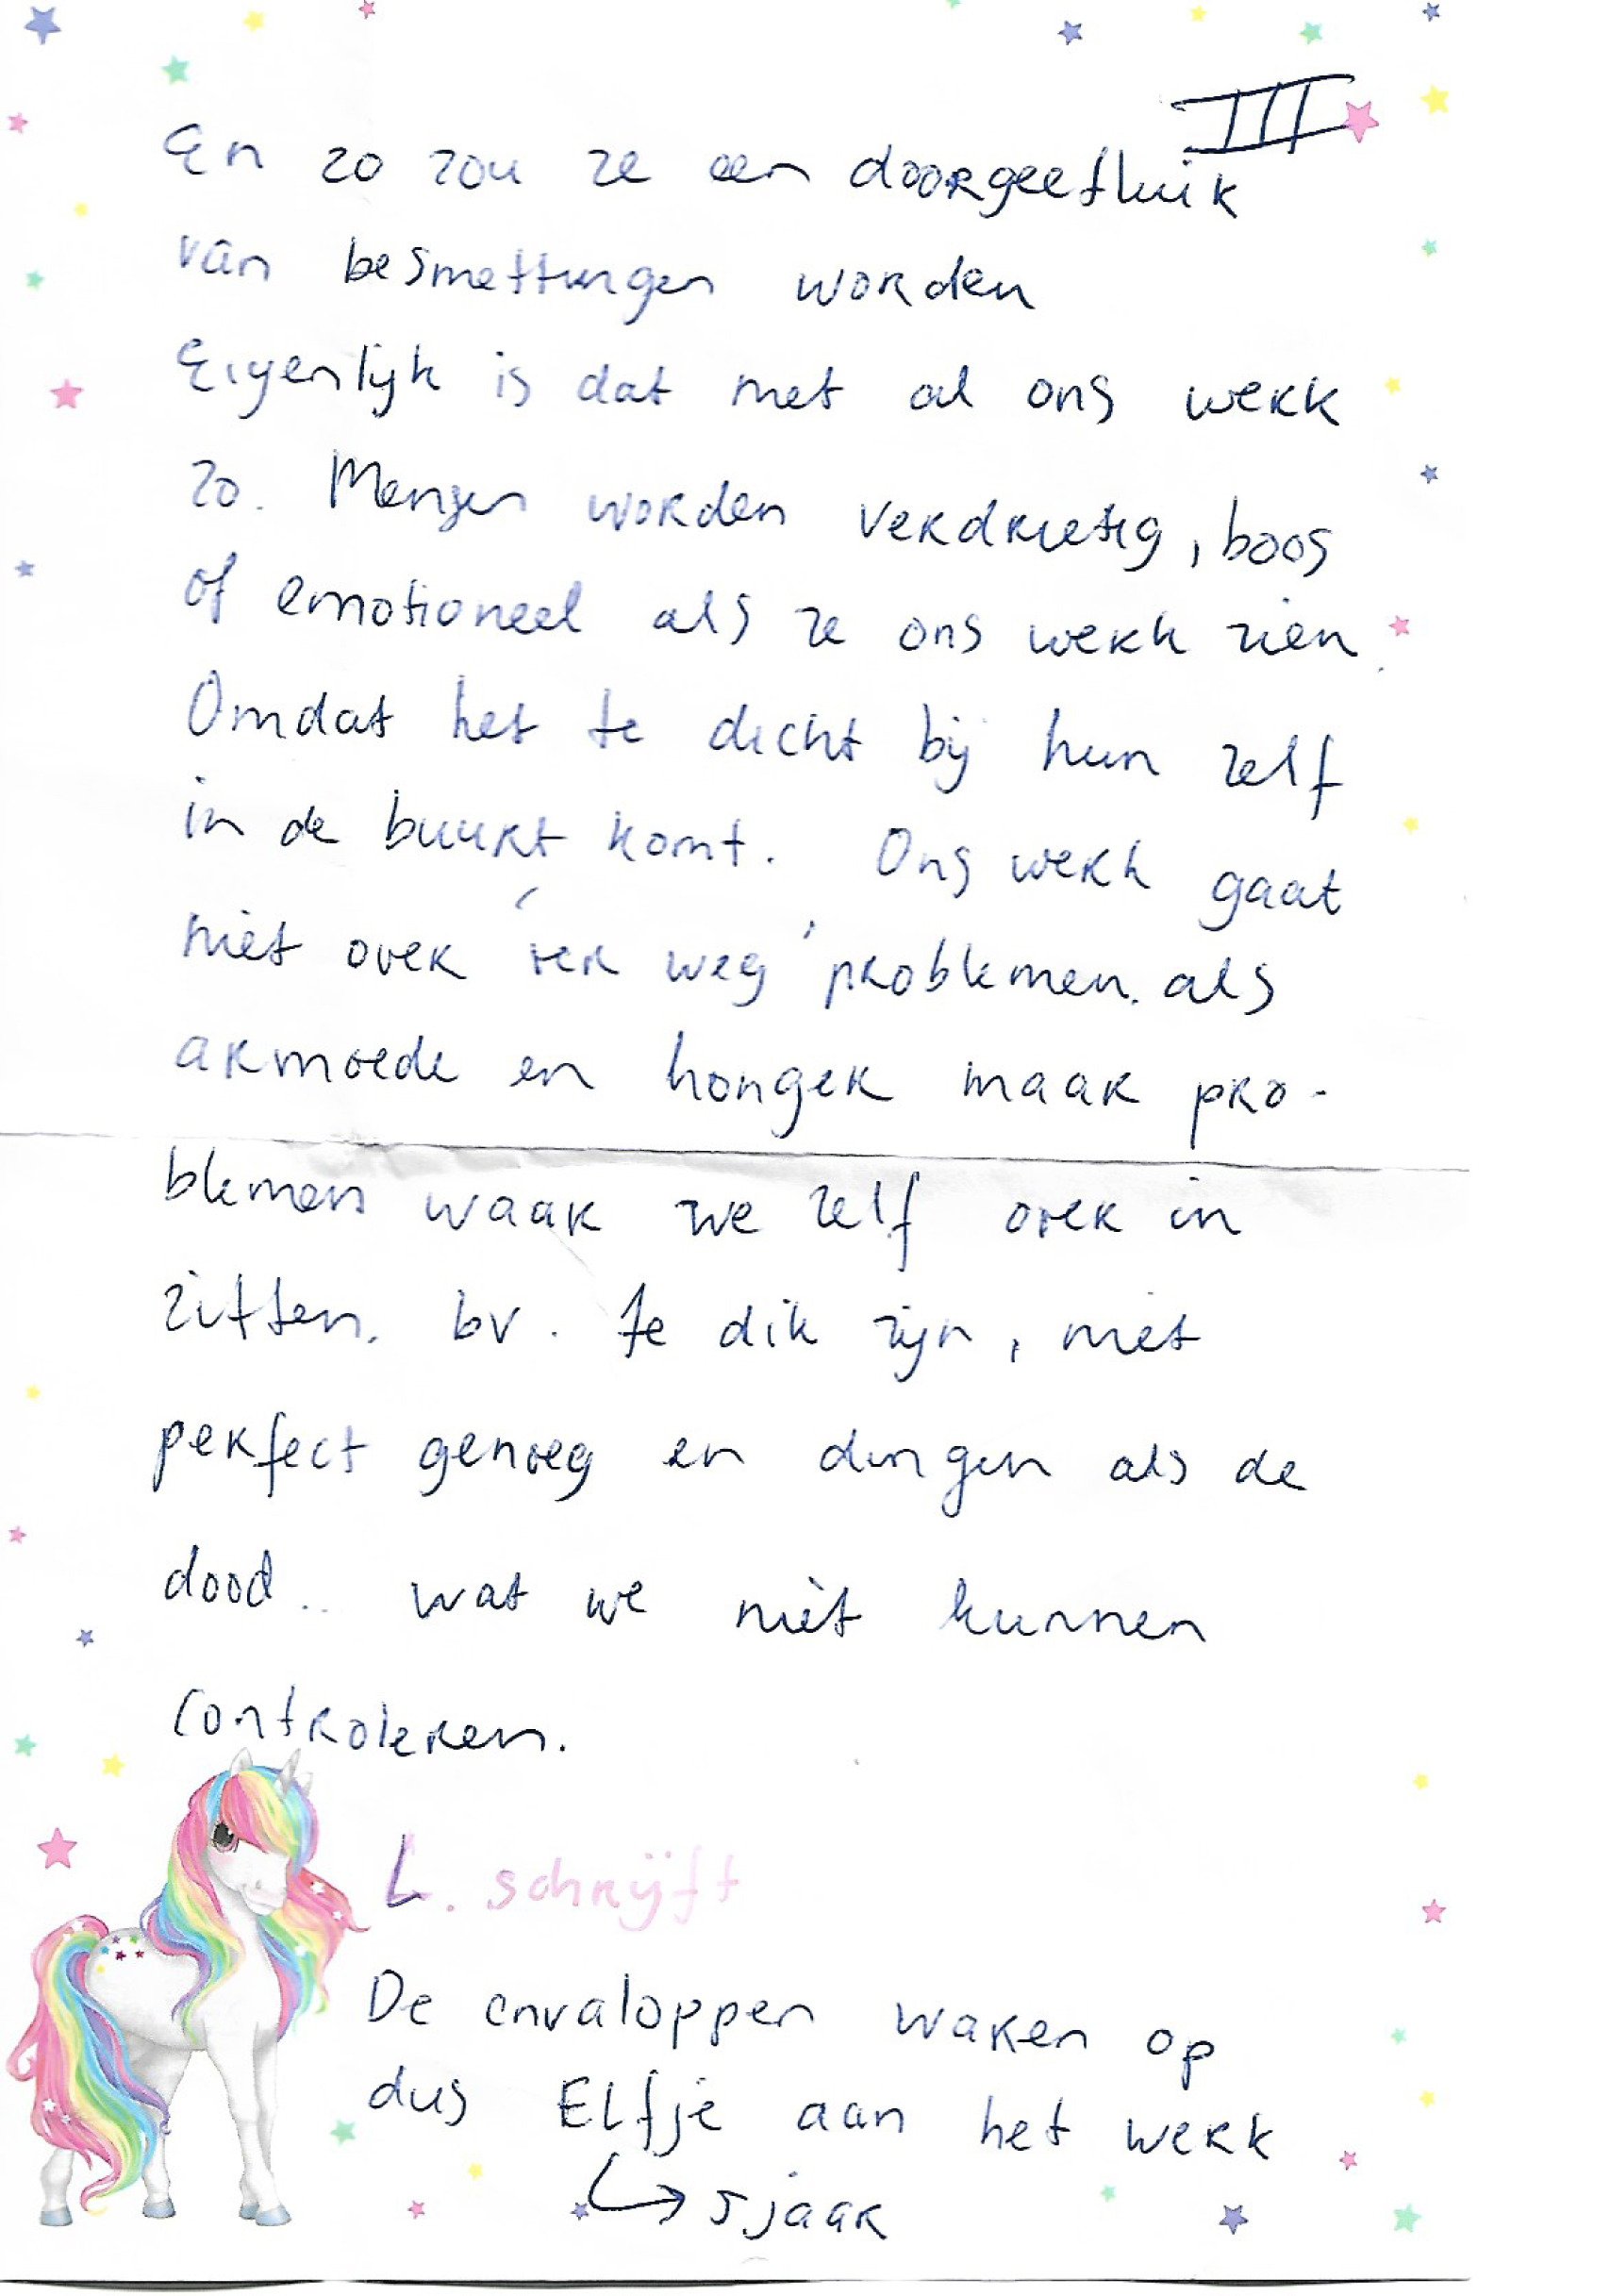 III
En zo zou ze een doorgeefluik
van besmettingen worden
Eigenlijk is dat met al ons werk
zo. Mensen worden verdrietig, boos
of emotioneel als ze ons werk zien.
Omdat het te dicht bij hun zelf
in de buurt komt. Ons werk gaat
niet over 'ver weg' problemen. als
armoede en honger maar pro-
blemen waar we zelf over in
zitten. bv. te dik zijn, niet
perfect genoeg en dingen als de
dood.. wat we niet kunnen
controleren.
L. schrijft
De envaloppen waren op
dus Elfje aan het werk
↳ Sjaak